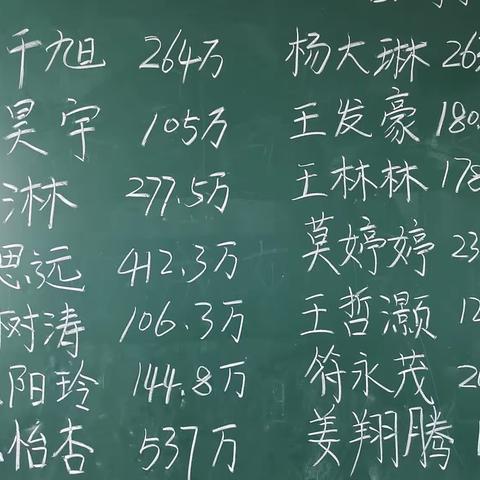 千旭 264万 杨大琳 263
昊宇 105万 王发豪 180.
淋 277.5万 王林林 178
思远 412.3万 莫婷婷 23
树涛 106.3万 王哲灏 12
阳玲 144.8万 符永茂 2
怡杏 537万 姜翔腾